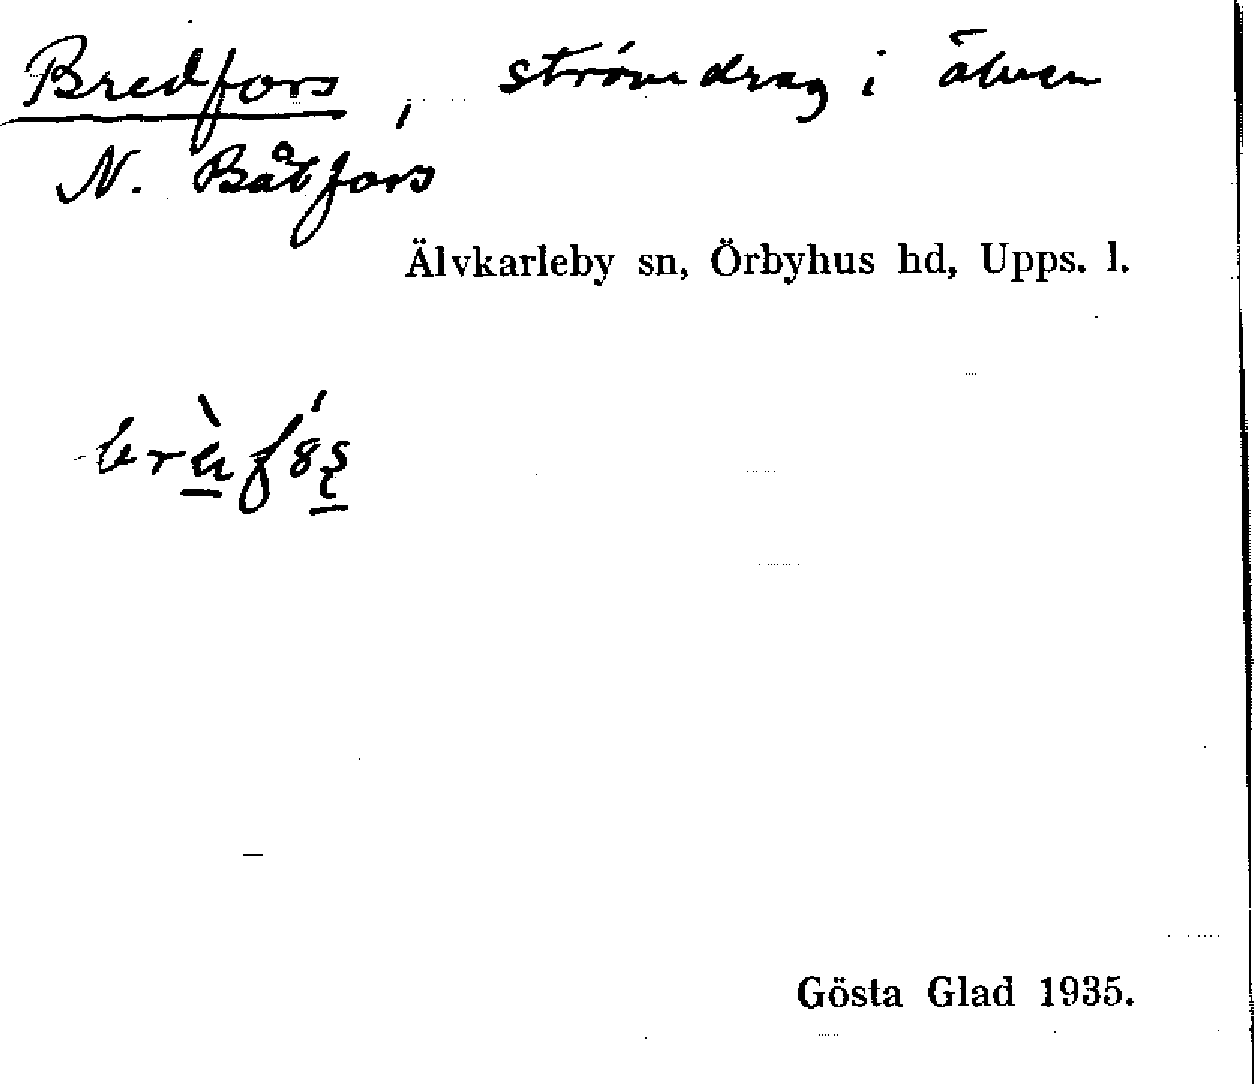 Bredfors, strömdrag i älven
N. Båtfors
Älvkarleby sn, Örbyhus hd, Upps. l.
Gösta Glad 1935.